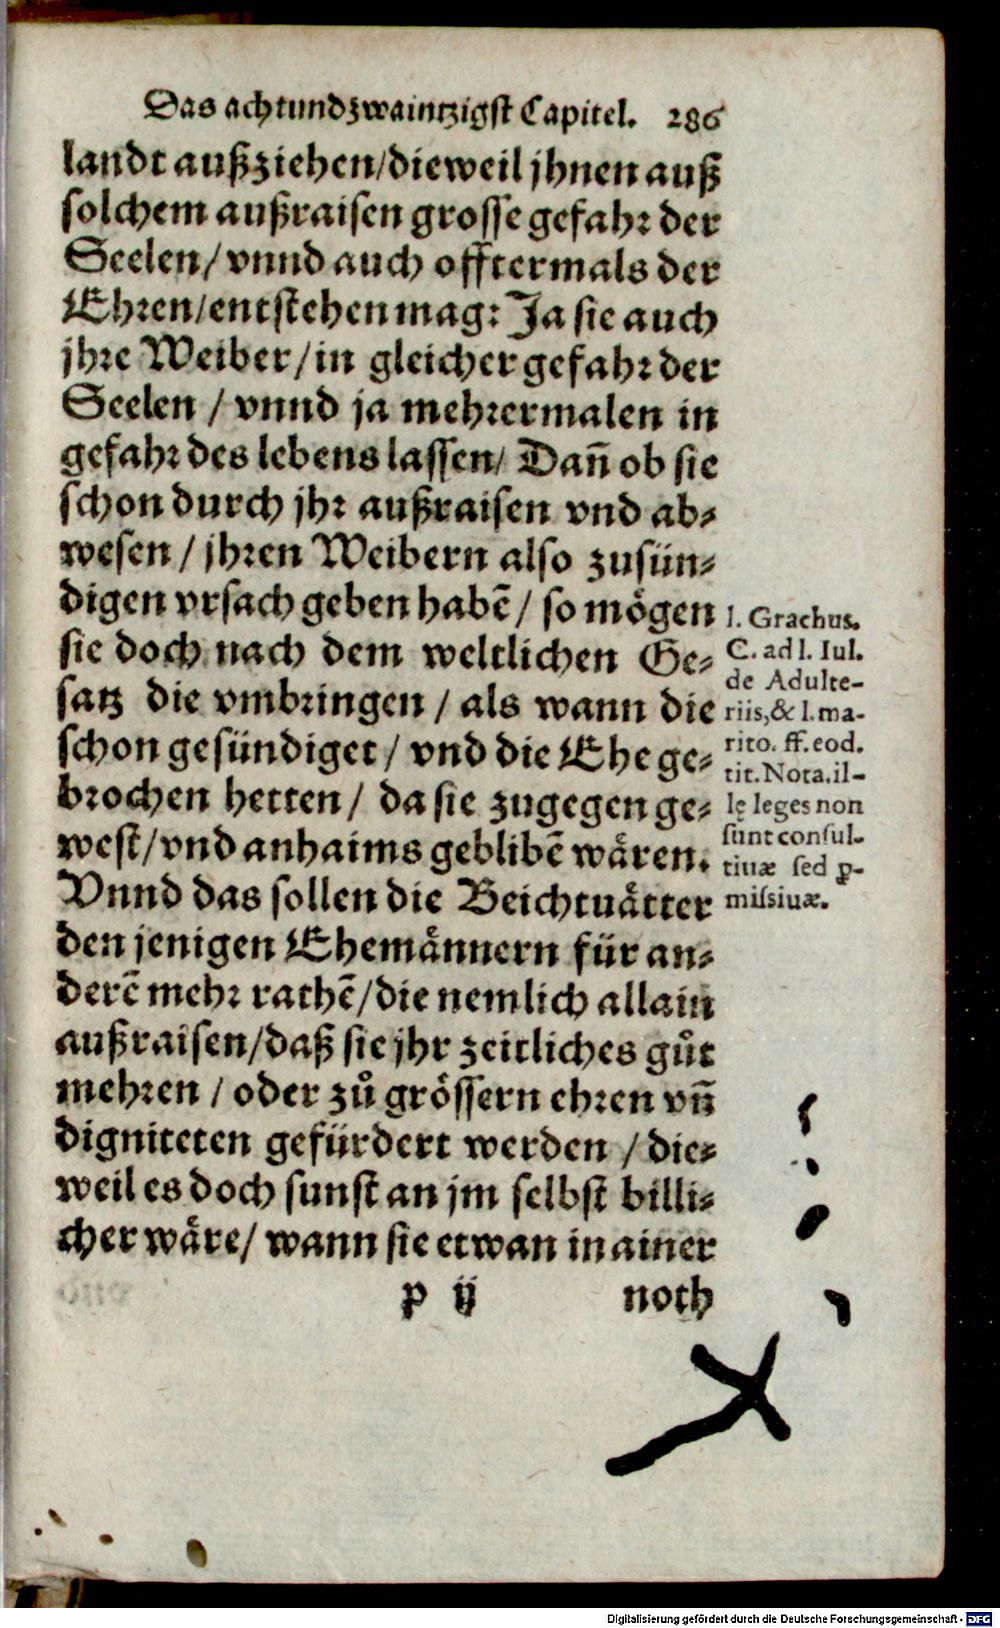 Das achtundzwaintzigst Capitel. 286
landt außziehen/dieweil jhnen auß
solchem außraisen grosse gefahr der
Seelen/ vnnd auch offtermals der
Ehren/entstehen mag: Ja sie auch
jhre Weiber/in gleicher gefahr der
Seelen / vnnd ja mehrermalen in
gefahr des lebens lassen/ Dañ ob sie
schon durch jhr außraisen vnd ab⸗
wesen / jhren Weibern also zusün⸗
digen vrsach geben habẽ / so mögen
sie doch nach dem weltlichen Ge⸗
satz die vmbringen / als wann die
schon gesündiget / vnd die Ehe ge⸗
brochen hetten / da sie zugegen ge⸗
west/vnd anhaims geblibẽ wären.
Vnnd das sollen die Beichtuätter
den jenigen Ehemännern für an⸗
derẽ mehr rathẽ/die nemlich allain
außraisen/daß sie jhr zeitliches gůt
mehren / oder zů grössern ehren vñ
digniteten gefürdert werden / die⸗
weil es doch sunst an jm selbst billi⸗
cher wäre/ wann sie etwan in ainer
p ij noth
l. Grachus.
C. ad l. Iul.
de Adulte-
riis,& l. ma-
rito. ff. eod.
tit. Nota. il-
lę leges non
sunt consul-
tiuæ sed ꝑ-
missiuæ.
Digitalisierung gefördert durch die Deutsche Forschungsgemeinschaft - DFG